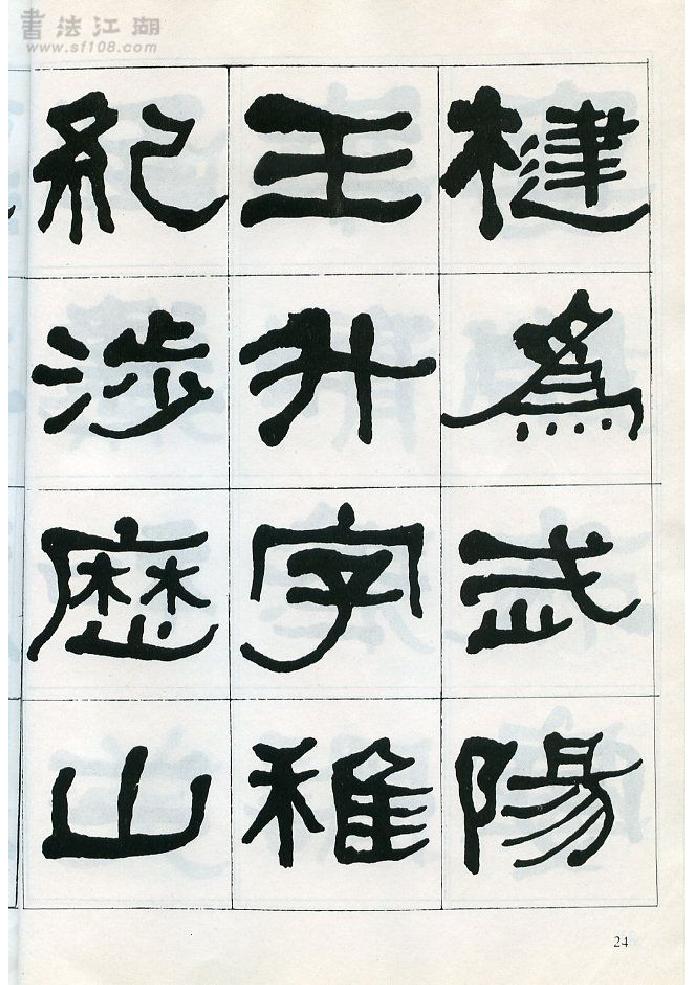 書法江湖
www.sf108.com
楗為武陽
王升字稚
紀涉歷山
24